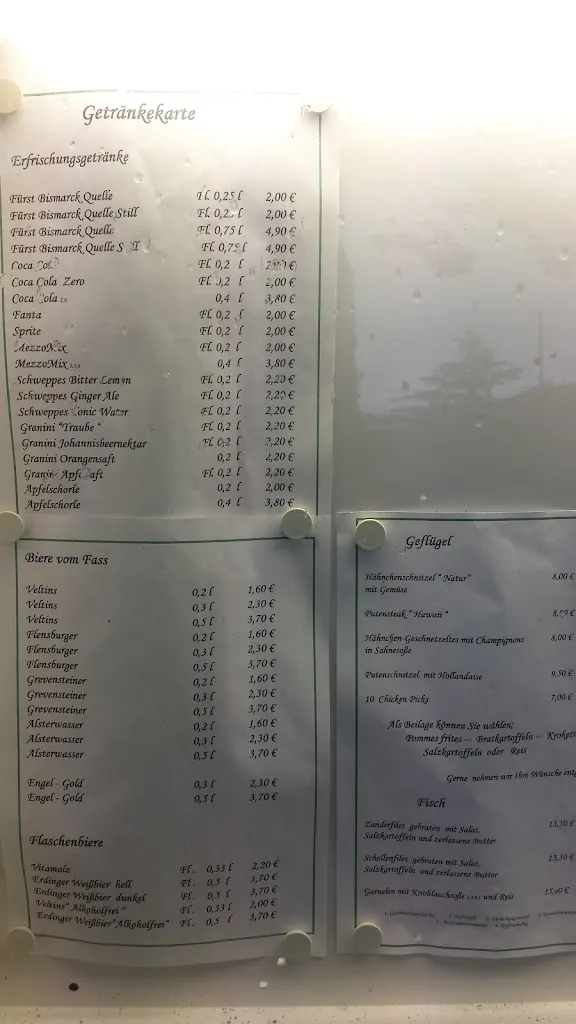 Getränkekarte
Erfrischungsgetränke
Fürst Bismarck Quelle Fl. 0,25 l 2,00 €
Fürst Bismarck Quelle Still Fl. 0,2 l 2,00 €
Fürst Bismarck Quelle Fl. 0,75 l 4,90 €
Fürst Bismarck Quelle Fl. 0,75 l 4,90 €
Coca Fl. 0,2 l €
Coca Cola Zero Fl. 0,2 l 2,00 €
Coca Cola 0,4 l 3,80 €
Fanta Fl. 0,2 l 2,00 €
Sprite Fl. 0,2 l 2,00 €
MezzoMix Fl. 0,2 l 2,00 €
MezzoMix 0,4 l 3,80 €
Schweppes Bitter Lemon Fl. 0,2 l 2,20 €
Schweppes Ginger Ale Fl. 0,2 l 2,20 €
Schweppes Tonic Water Fl. 0,2 l 2,20 €
Granini "Traube" Fl. 0,2 l 2,20 €
Granini Johannisbeernektar Fl. 0,2 l 2,20 €
Granini Orangensaft 0,2 l 2,20 €
Granini Apfelsaft Fl. 0,2 l 2,20 €
Apfelschorle 0,2 l 2,00 €
Apfelschorle 0,4 l 3,80 €
Biere vom Fass
Veltins 0,2 l 1,60 €
Veltins 0,3 l 2,30 €
Veltins 0,5 l 3,70 €
Flensburger 0,2 l 1,60 €
Flensburger 0,3 l 2,30 €
Flensburger 0,5 l 3,70 €
Grevensteiner 0,2 l 1,60 €
Grevensteiner 0,3 l 2,30 €
Grevensteiner 0,5 l 3,70 €
Alsterwasser 0,2 l 1,60 €
Alsterwasser 0,3 l 2,30 €
Alsterwasser 0,5 l 3,70 €
Engel - Gold 0,3 l 2,30 €
Engel - Gold 0,5 l 3,70 €
Flaschenbiere
Vitamalz Fl. 0,33 l 2,20 €
Erdinger Weißbier hell Fl. 0,5 l 3,70 €
Erdinger Weißbier dunkel Fl. 0,5 l 3,70 €
Veltins "Alkoholfrei" Fl. 0,33 l 2,00 €
Erdinger Weißbier "Alkoholfrei" Fl. 0,5 l 3,70 €
Geflügel
Hähnchenschnitzel "Natur" 8,00 €
mit Gemüse
Putensteak "Hawaii" €
Hähnchen-Geschnetzeltes mit Champignons 8,00 €
in Sahnesoße
Putenschnitzel mit Hollandaise 9,50 €
10 Chicken Picks 7,00 €
Als Beilage können Sie wählen:
Pommes frites – Bratkartoffeln – Krokett
Salzkartoffeln oder Reis
Gerne nehmen wir Ihre Wünsche entg
Fisch
Zanderfilet gebraten mit Salat, 13,50 €
Salzkartoffeln und zerlassene Butter
Schollenfilet gebraten mit Salat, 13,50 €
Salzkartoffeln und zerlassene Butter
Garnelen mit Knoblauchsoße und Reis €